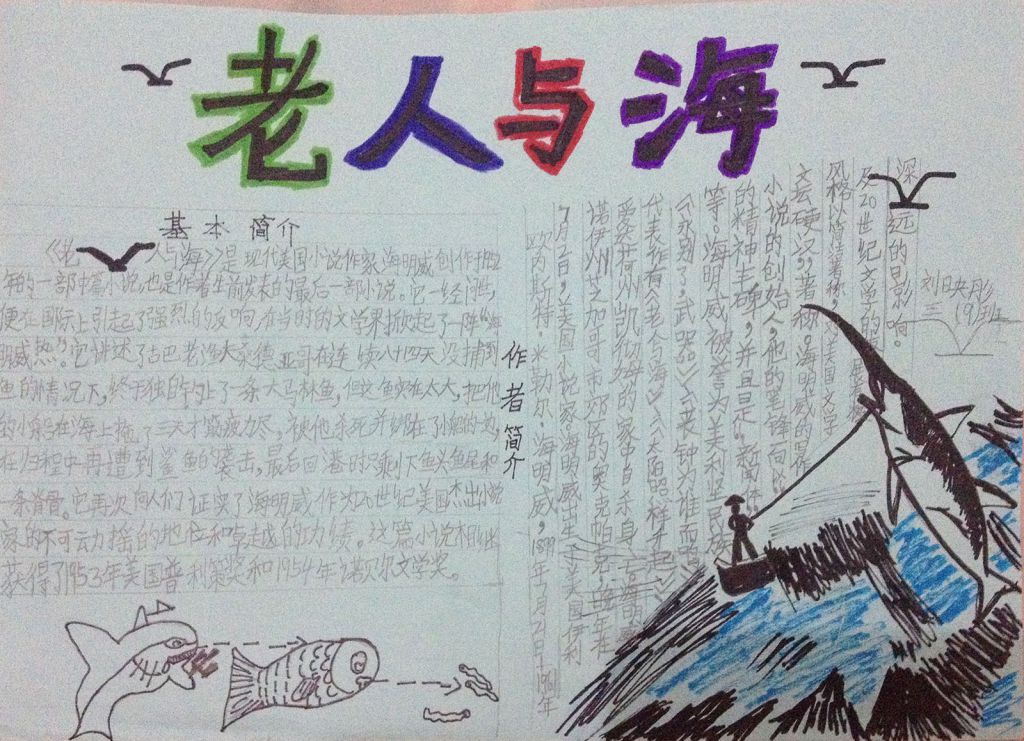 老人与海
基本简介
《老人与海》是现代美国小说作家海明威创作于1952
年的一部中篇小说,也是作者生前发表的最后一部小说。它一经问世,
便在国际上引起了强烈的反响,在当时的文学界掀起了一阵“海
明威热”。它讲述了古巴老渔夫桑德亚哥在连续八十四天没捕到
鱼的情况下,终于独自钓上了一条大马林鱼,但这鱼实在太大,把他
的小船在海上拖了三天才筋疲力尽,被他杀死并绑在了小船的边,
在归程中再遭到鲨鱼的袭击,最后回港时只剩下鱼头鱼尾和
一条脊骨。它再次向人们证实了海明威作为20世纪美国杰出小说
家的不可动摇的地位和卓越的功绩。这篇小说相继
获得了1953年美国普利策奖和1954年诺贝尔文学奖。
作者简介
欧内斯特·米勒尔·海明威,1899年7月21日—1961年
7月2日,美国小说家。海明威出生于美国伊利
诺伊州芝加哥市郊区的奥克帕克,晚年在
爱达荷州凯彻姆的家中自杀身亡。海明威
代表作有《老人与海》《太阳照样升起》
《永别了,武器》《丧钟为谁而鸣》
等。海明威被誉为美利坚民族
的精神丰碑,并且是“新闻体”
小说的创始人,他的笔锋向以
文坛硬汉”著称。海明威的写作
风格以简洁著称,对美国文学
及20世纪文学的发展有极
深远的影响。
刘映彤
三(9)班